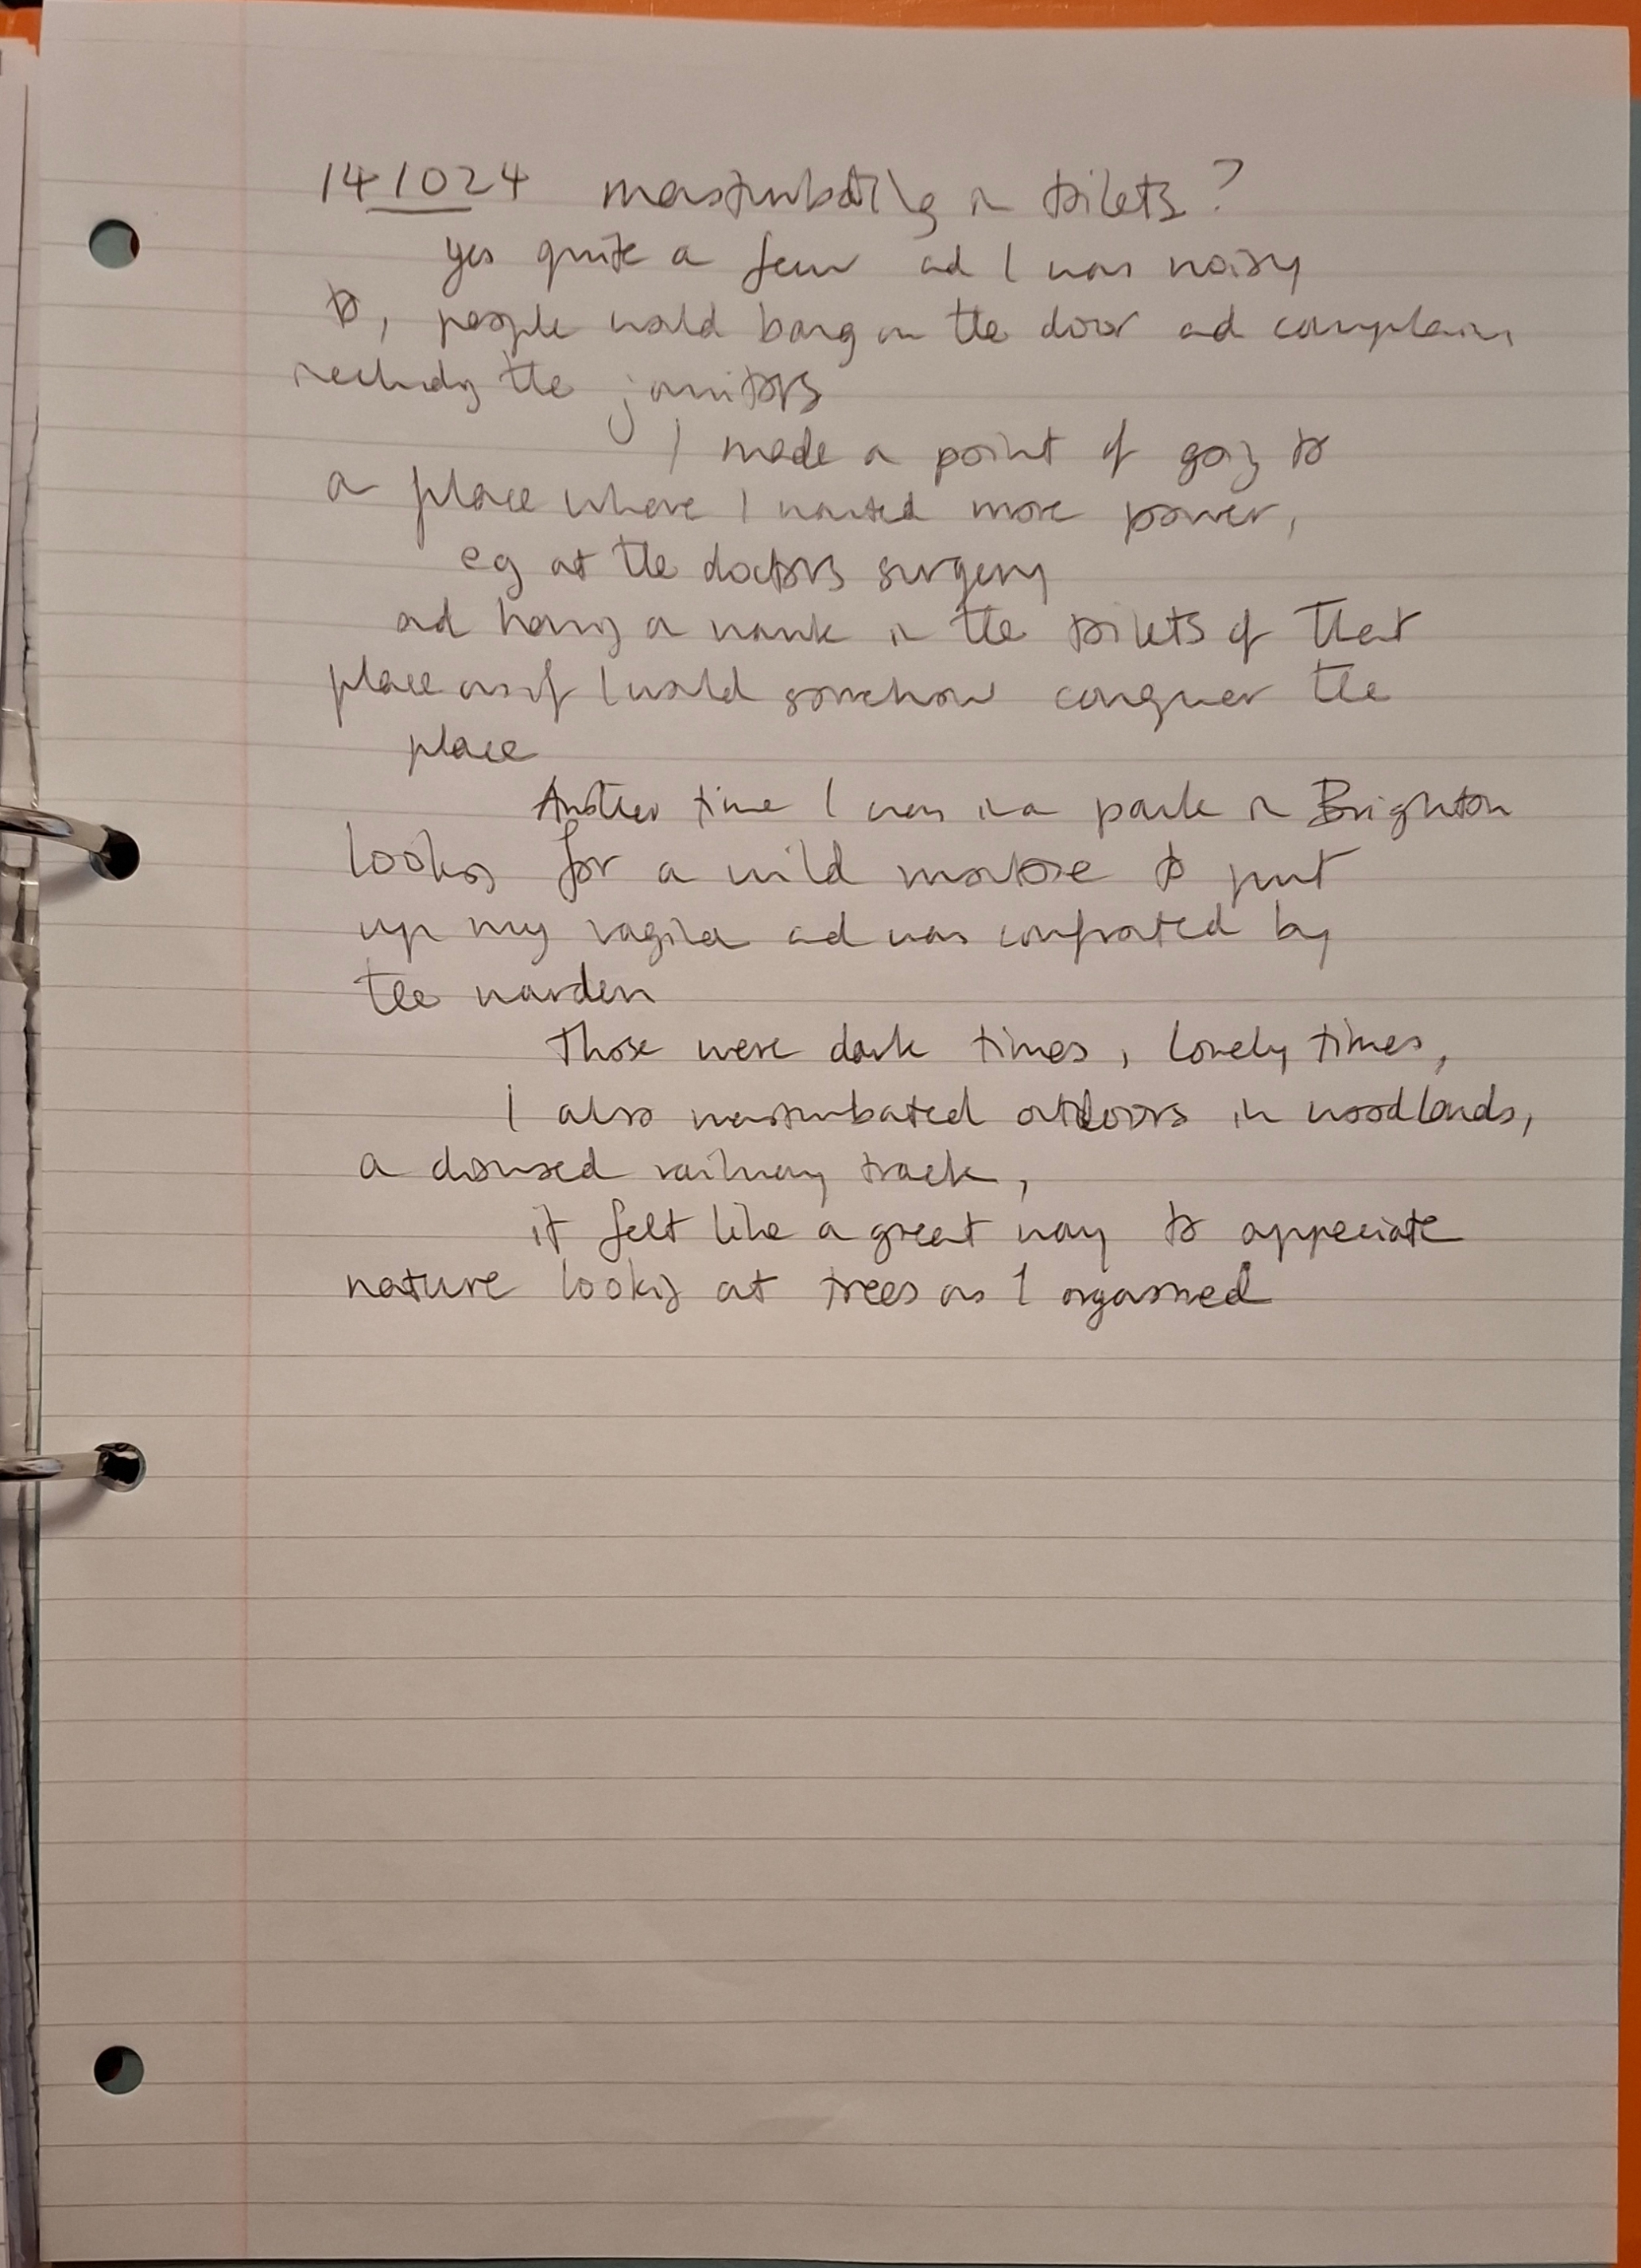 141024 masturbating in toilets?
yes quite a few and I was noisy
to, people would bang on the door and complain,
including the janitors
I made a point of going to
a place where I wanted more power,
eg at the doctors surgery
and having a wank in the toilets of that
place as if I would somehow conquer the
place
Another time I was in a park in Brighton
looking for a wild to put
up my vagina and was confronted by
the warden
Those were dark times, lonely times,
I also masturbated outdoors in woodlands,
a disused railway track,
it felt like a great way to appeciate
nature looking at trees as I orgasmed